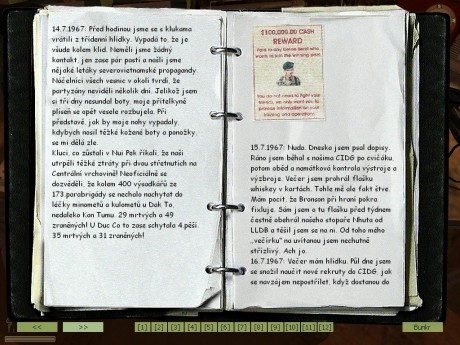 14.7.1967: Před hodinou jsme se s klukama
vrátili z třídenní hlídky. Vypadá to, že je
všude kolem klid. Neměli jsme žádný
kontakt, jen zase pár pastí a našli jsme
nějaké letáky severovietnamské propagandy.
Náčelníci všech vesnic v okolí tvrdí, že
partyzány neviděli několik dní. Jelikož jsem
si tři dny nesundal boty, moje přítelkyně
plíseň se opět vesele rozbujelo. Při
představě, jak by moje nohy vypadaly,
kdybych nosil těžké kožené boty a ponožky,
se mi dělá zle.
Kluci, co zůstali v Nui Pek říkali, že naši
utrpěli těžké ztráty při dvou střetnutích na
Centrální vrchovině! Neoficiálně se
dozvěděli, že kolem 400 výsadkářů ze
173.parabrigády se nacholo nachytat do
léčky minometů a kulometů u Dak To,
nedaleko Kon Tumu. 29 mrtvých a 49
zraněných! U Duc Co to zase schytala 4.pěší.
35 mrtvých a 31 zraněných!
$100,000.00 CASH
REWARD
15.7.1967: Nuda. Dneska jsem psal dopisy.
Ráno jsem běhal s našima CIDG po cvičáku,
potom oběd a namátková kontrola výstroje a
výzbroje. Večer jsem prohrál flašku
whiskey v kartách. Tohle mě ale fakt štve.
Mám pocit, že Bronson při hraní pokra
fixluje. Sám jsem o tu flašku před týdnem
čestně obehrál našeho stopaře Nhuta od
LLDB a těšil jsem se na ni. Od toho mého
„večírku" na uvítanou jsem nechutně
střízlivý. Ach jo.
16.7.1967: Večer mám hlídku. Půl dne jsem
se snažil naučit nové rekruty do CIDG, jak
se navzájem nepostřílet, když dostanou do
<< >> [1] [2] [3] [4] [5] [6] [7] [8] [9] [10] [11] [12] Bunkr